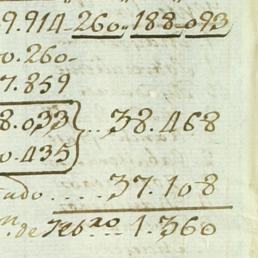 9.914-260-188-093
0.260-
7.859
8.033}...38.468
0.435
ado....37.108
n. de Feb.ro...1.360